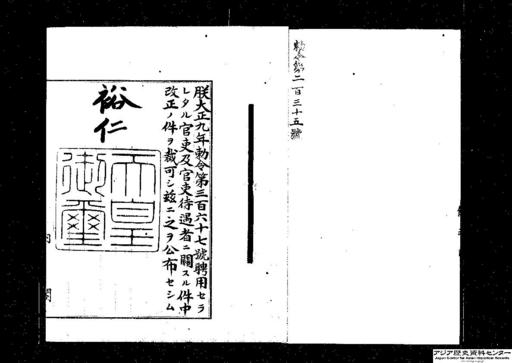 勅令第二百三十五號
朕大正九年勅令第三百六十七號聘用セラ
レタル官吏及官吏待遇者ニ關スル件中
改正ノ件ヲ裁可シ茲ニ之ヲ公布セシム
裕仁
天皇御璽
内閣
アジア歴史資料センター
Japan Center for Asian Historical Records